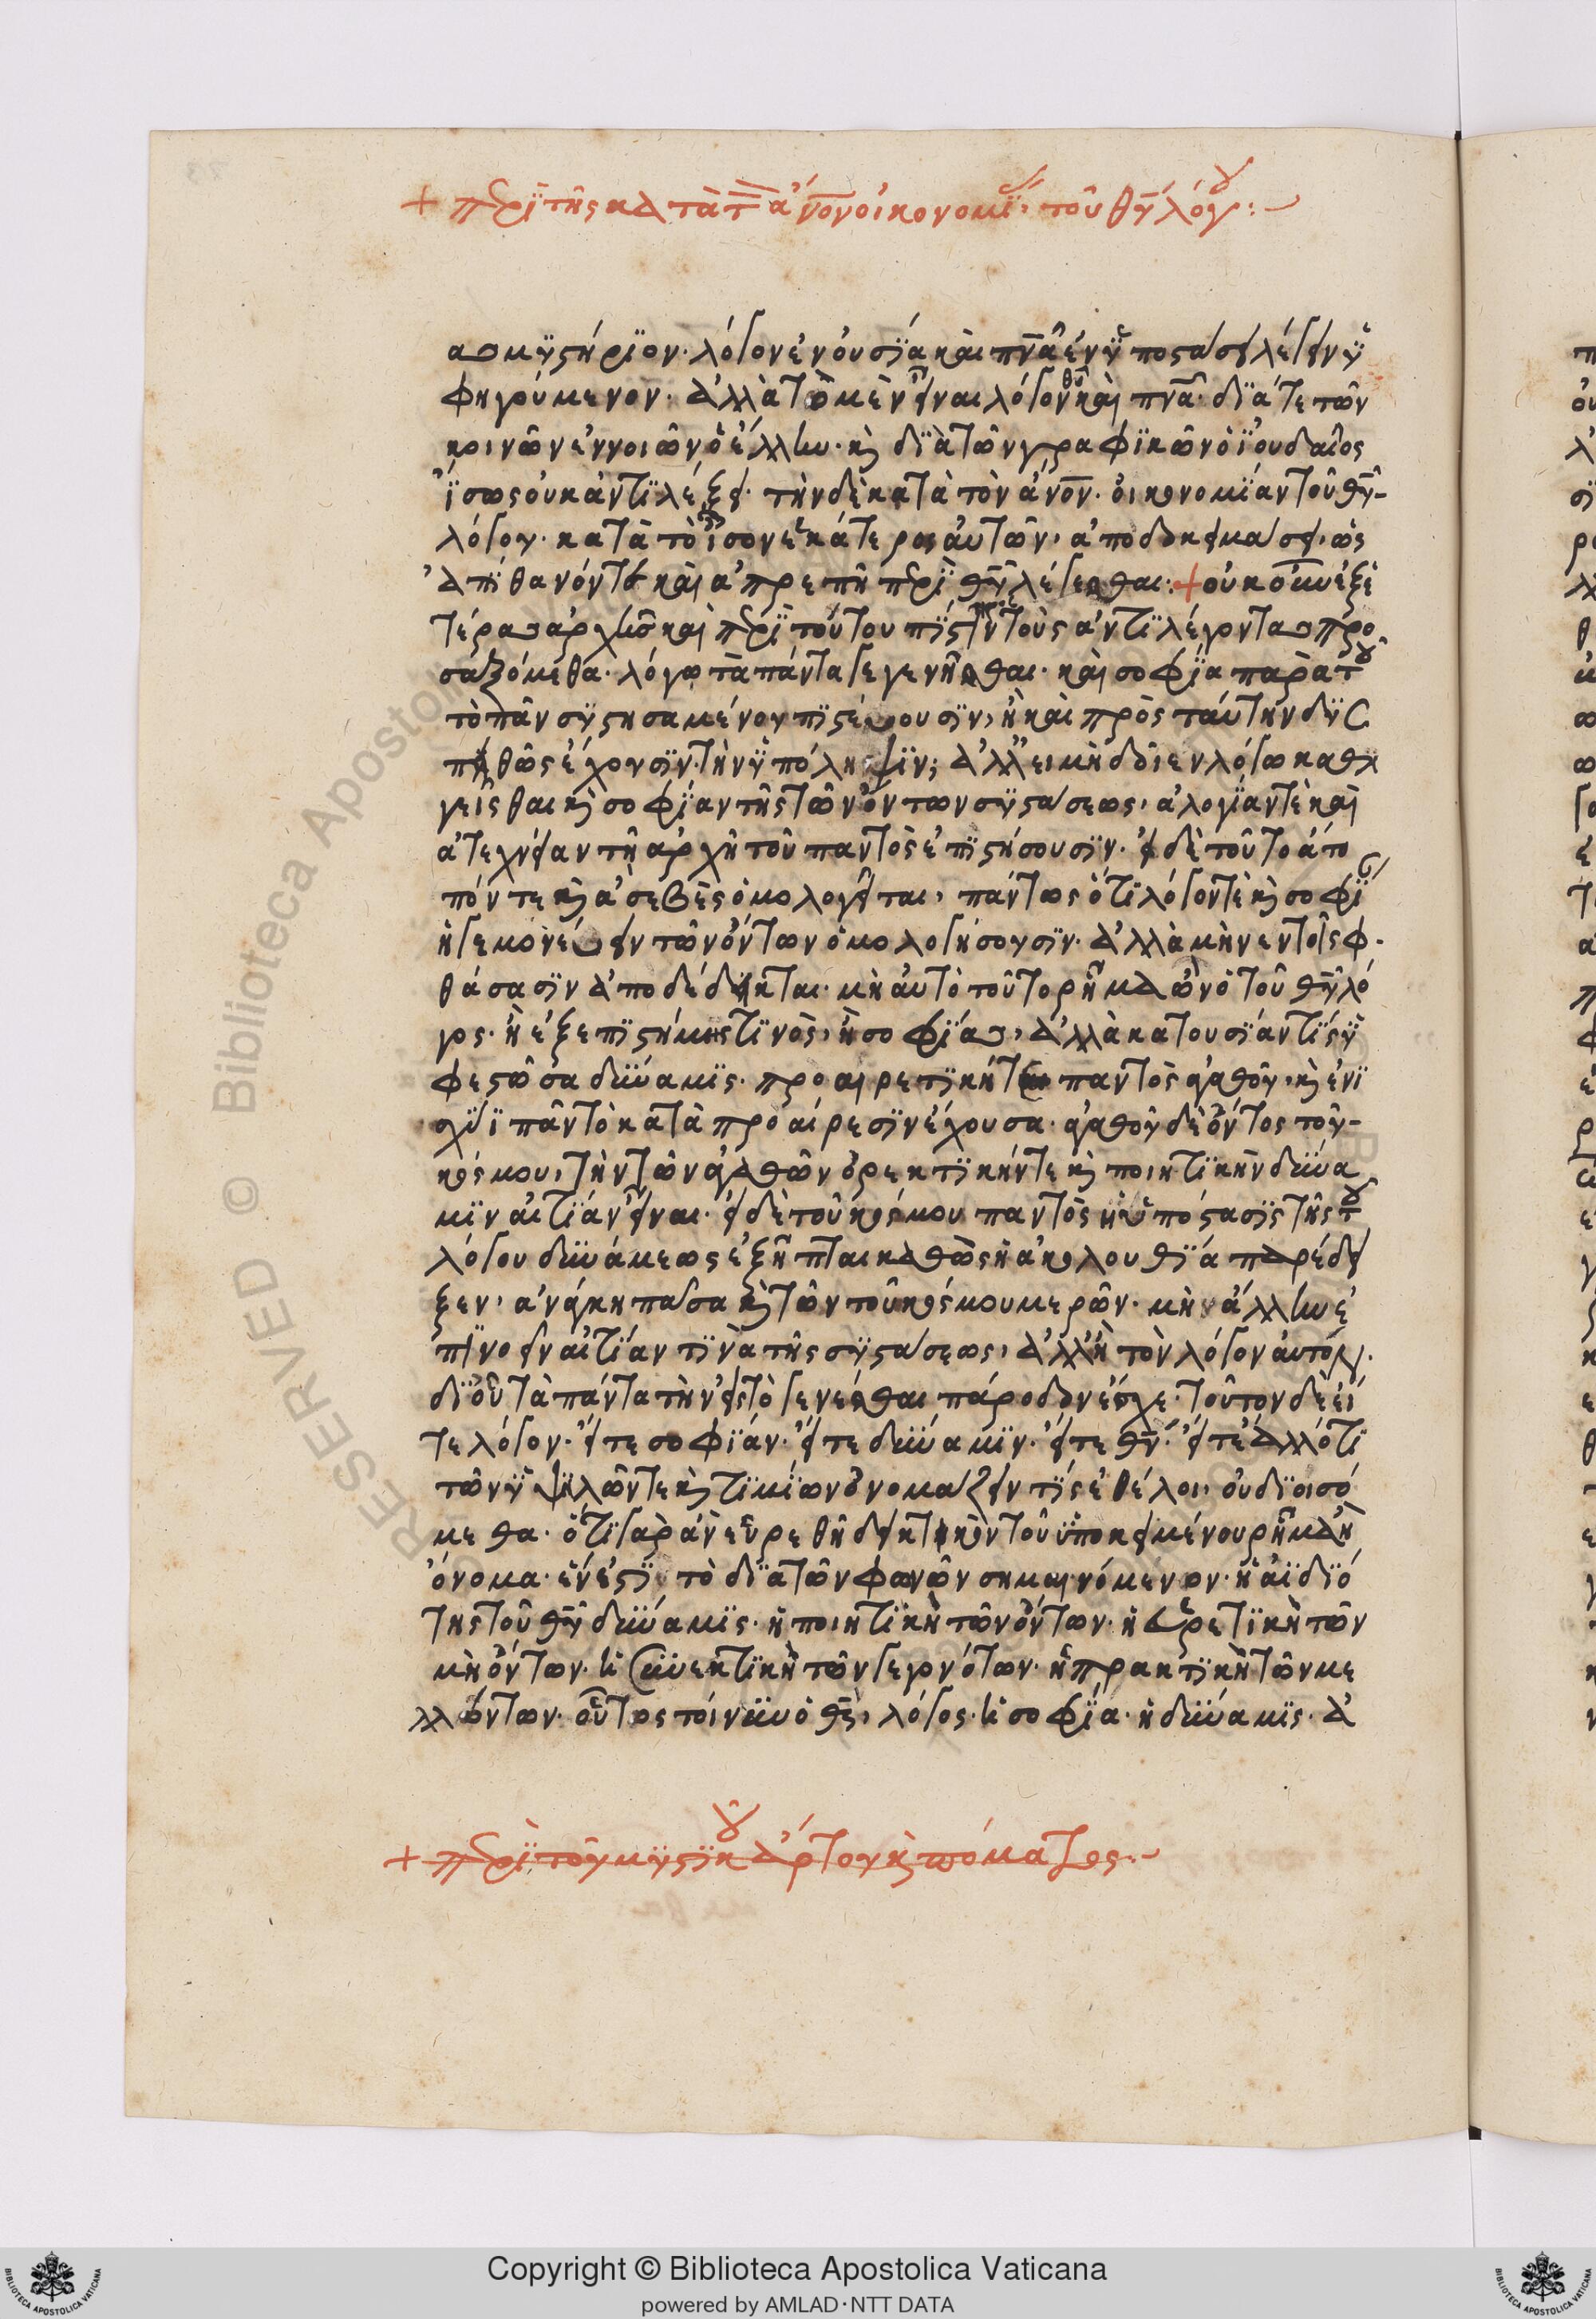 + περὶ τῆς κατὰ τ ἄνον οἰκονομί τοῦ θυ λόγου :~
ας μυστήριον· λόγον ἐν οὐσία καὶ πνα ἐν ὑποστάσει λέγειν ὑ
φηγούμενον· ἀλλὰ τὸ μὲν εἶναι λόγον θυ καὶ πνα· διά τε τῶν
κοινῶν ἐννοιῶν ὁ ἕλλην· κ διὰ τῶν γραφικῶν ὁ ἰουδαῖος
ἴσως οὐκ ἀντιλέξει· τὴν δὲ κατὰ τὸν ἄνον· οἰκονομίαν τοῦ θυ
λόγου· κατὰ τὸ ἴσον ἑκάτερος αὐτῶν, ἀποδοκιμάσει, ὡς
ἀπίθανόν τε καὶ ἀπρεπῆ περὶ θυ λέγεσθαι· + οὐκοῦν ἐξ ἑ
τέρας ἀρχῆς καὶ περὶ τούτου πίστιν τοὺς ἀντιλέγοντας προ
σαξόμεθα· λόγω τὰ πάντα γεγενῆσθαι· καὶ σοφία παρὰ τ
τὸ πᾶν συστησαμένου πιστεύουσιν, ἢ καὶ πρὸς ταύτην δυσ
πειθῶς ἔχουσιν τὴν ὑπόληψιν; ἀλλ' ει μὴ δοῖεν λόγω καθη
γεῖσθαι κ σοφίαν τῆς τῶν ὄντων συστάσεως, ἀλογίαν τὲ καὶ
ἀτεχνείαν τῆ ἀρχῆ τοῦ παντὸς ἐπιστήσουσιν· εἰ δὲ τοῦτο ἄτο
πόν τε κ ἀσεβὲς ὁμολογεῖται, πάντως ὅτι λόγον τὲ κ σοφί
ἡγεμονεύειν τῶν ὄντων ὁμολογήσουσιν· ἀλλὰ μὴν ἐν τοῖς φ
θάσασιν ἀποδέδεικται· μὴ αὐτὸ τοῦτο ρῆμα ὢν ὁ τοῦ θυ λό
γος· ἢ ἕξ ἐπιστήμης τινὸς, ἢ σοφίας, ἀλλὰ κατουσίαν τίς ὑ
φεστῶσα δύναμις· προαιρετικὴ παντὸς ἀγαθοῦ, κ ἐν ἰ
σχύϊ πᾶν τὸ κατὰ προαίρεσιν ἔχουσα· ἀγαθοῦ δὲ ὄντος τοῦ
κόσμου, τὴν τῶν ἀγαθῶν ὀρεκτικήν τε κ ποιητικὴν δύνα
μιν αἰτίαν εἶναι· εἰ δὲ τοῦ κόσμου παντὸς ἡ ὑπόστασις τῆς τ
λόγου δυνάμεως ἐξῆπται καθὼς ἡ ἀκολουθία παρέδει
ξεν, ἀνάγκη πᾶσα κ τῶν τοῦ κόσμου μερῶν· μὴν ἄλλην ἐ
πινοεῖν αἰτίαν τινὰ τῆς συστάσεως, ἀλλ' ἢ τὸν λόγον αὐτόν·
δι οὗ τὰ πάντα τὴν εἰς τὸ γενέσθαι πάροδον ἔσχε· τοῦτον δὲ εἴ
τε λόγον· εἴτε σοφίαν· εἴτε δύναμιν· εἴτε θν· εἴτε ἀλλότι
τῶν ὑψηλῶν τε κ τιμίων ὀνομάζειν τίς ἐθέλοι, οὐ διοισό
μεθα· ὅτι γὰρ ἂν εὑρεθῆ δεικτικὸν τοῦ ὑποκειμένου ρῆμα ἢ
ὄνομα· ἕν ἐστι τὸ διὰ τῶν φωνῶν σημαινόμενον· ἡ ἀϊδιό
της τοῦ θυ δύναμις· ἡ ποιητικὴ τῶν ὄντων· ἡ εὑρετικὴ τῶν
μὴ ὄντων· ἡ συνεκτικὴ τῶν γεγονότων· ἡ πρακτικὴ τῶν με
λλόντων· οὗτος τοίνυν ὁ θς, λόγος· ἡ σοφία· ἡ δύναμις· ἀ
+ περὶ τοῦ μυστικ ἄρτου κ πόματος :~
Copyright © Biblioteca Apostolica Vaticana
powered by AMLAD·NTT DATA
RESERVED © Biblioteca Apostol
BIBLIOTECA APOSTOLICA VATICANA
BIBLIOTECA APOSTOLICA VATICANA